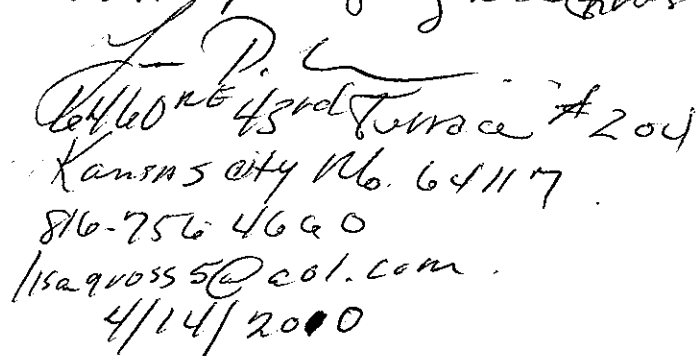 6460 NE 43rd Terrace #204
Kansas City Mo. 64117.
816-756 4660
lisagross5@aol.com.
4/14/2010